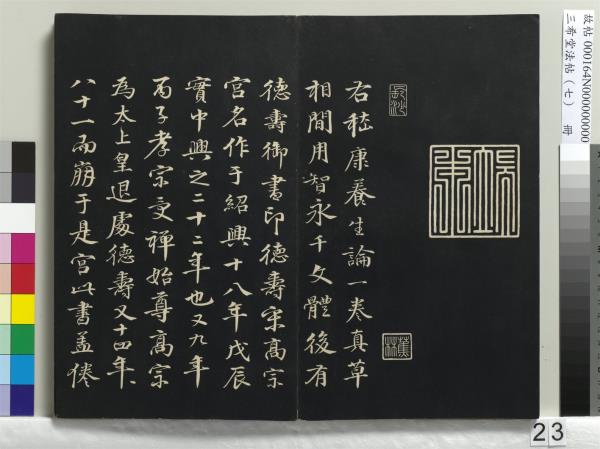 右嵇康養生論一卷真草
相間用智永千文體後有
德壽御書印德壽宋高宗
宮名作于紹興十八年戊辰
實中興之二十二年也又九年
丙子孝宗受禪始尊高宗
為太上皇退處德壽又十四年
八十一而崩于是宮此書蓋倦
蕉林
故帖000164N000000000
三希堂法帖（七） 冊
23